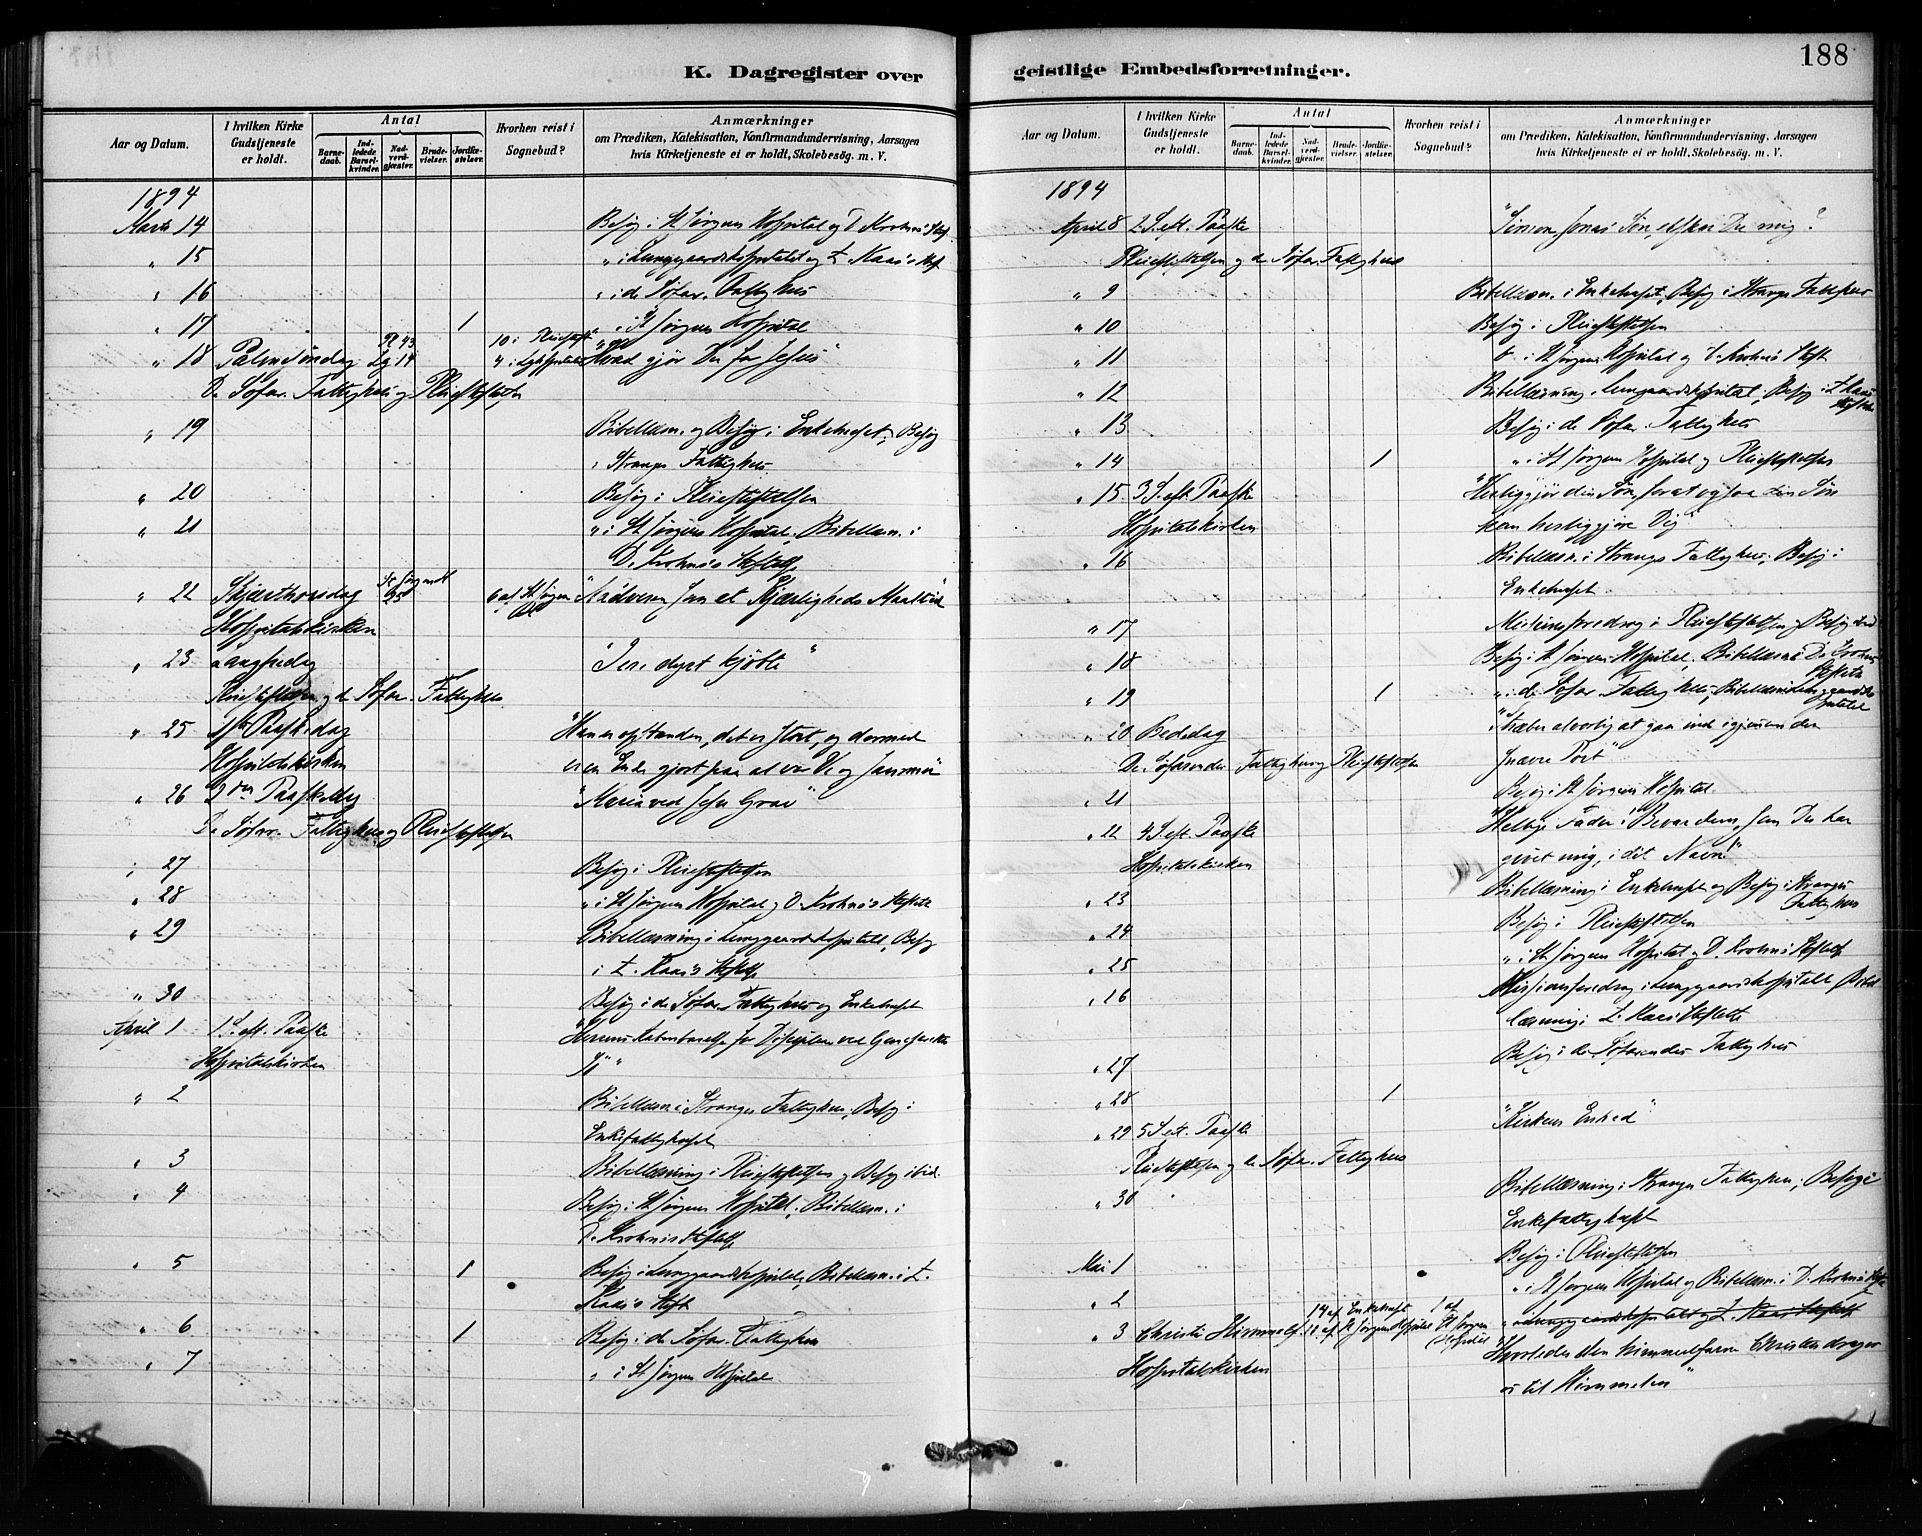 188
K. Dagregister over
Aar og Datum.
I hvilken Kirke Gudstjeneste er holdt.
Antal
Barnedaab.
Indledede Barselkvinder.
Nadverdgjæster.
Brudevielser.
Jordfæstelser.
Hvorhen reist i Sognebud?
Anmærkninger
om Prædiken, Katekisation, Konfirmandundervisning, Aarsagen
hvis Kirketjeneste ei er holdt, Skolebesøg. m. V.
1894
Marts 14 Besøg i St Jørgens Hospital og D. Krohn's Stift.
" 15 " i Lungegaardshospitalet og Z. Kaas's Stift
" 16 " i de Søfar. Fattighus
" 17 1 " i St Jørgens Hospital
" 18 Palmesøndag Pl 43 Lg 14 10 i Pleiestift. 4 i Lghospitalet "Hvad gjør Du for Jesus"
De Søfar. Fattighus og Pleiestiftelsen
" 19 Bibellæsn. og Besøg i Enkehuset, Besøg
i Stranges Fattighus
" 20 Besøg i Pleiestiftelsen
" 21 " i St Jørgens Hospital, Bibellæsn. i
D. Krohn's Stiftelse
" 22 Skjærthorsdag 25 6 af St Jørgen "Nadveren som et Kjærligheds Maaltid
Hospitalskirken
" 23 Langfredag "I ere dyrt kjøbte"
Pleiestiftelsen og de Søfar. Fattighus
" 25 1ste Paaskedag "Han er opstanden, det er stort, og dermed
Hospitalskirken er en Ende gjort paa al vor Ve og Jammer
" 26 2den Paaskedag "Maria ved Jesu Grav"
De Søfar. Fattighus og Pleiestiftelsen
" 27 Besøg i Pleiestiftelsen
" 28 " i St Jørgens Hospital og D. Krohn's Stiftelse
" 29 Bibellæsning i Lungegaardshospitalet, Besøg
i Z. Kaas's Stiftelse
" 30 Besøg i de Søfar. Fattighus og Enkehuset
April 1 1 S. eft. Paaske "Herrens Aabenbarelse for Disciplene ved Genesareths
Hospitalskirken Sø"
" 2 Bibellæsn. i Stranges Fattighus, Besøg i
Enkefattighuset
" 3 Bibellæsning i Pleiestiftelsen og Besøg ibid.
" 4 Besøg i St Jørgens Hospital, Bibellæsn. i
D. Krohn's Stiftelse
" 5 1 Besøg i Lungegaardshospitalet, Bibellæsn. i Z.
Kaas's Stift
" 6 1 Besøg i de Søfar. Fattighus
" 7 " i St Jørgens Hospital
geistlige Embedsforretninger.
Aar og Datum.
I hvilken Kirke Gudstjeneste er holdt.
Antal
Barnedaab.
Indledede Barselkvinder.
Nadverdgjæster.
Brudevielser.
Jordfæstelser.
Hvorhen reist i Sognebud?
Anmærkninger
om Prædiken, Katekisation, Konfirmandundervisning, Aarsagen
hvis Kirketjeneste ei er holdt, Skolebesøg. m. V.
1894
April 8 2 S. eft. Paaske "Simon Jonas Søn, elsker Du mig?
Pleiestiftelsen og de Søfar. Fattighus
" 9 Bibellæsn. i Enkehuset, Besøg i Stranges Fattighus
" 10 Besøg i Pleiestiftelsen
" 11 " i St Jørgens Hospital og D. Krohn's Stift
" 12 Bibellæsning i Lungegaardshospital, Besøg i Z. Kaas's Stiftelse
" 13 Besøg i de Søfar. Fattighus
" 14 1 " i St Jørgens Hospital og Pleiestiftelsen
" 15 3 S. eft. Paaske "Herliggjør din Søn, for at ogsaa din Søn
Hospitalskirken kan herliggjøre Dig"
" 16 Bibellæsn. i Stranges Fattighus, Besøg i
Enkehuset
" 17 Missionsforedrag i Pleiestiftelsen og Besøg ibid
" 18 Besøg i St Jørgens Hospital, Bibellæsn. i D. Krohns Stiftelse
" 19 1 " i de Søfar. Fattighus, Bibellæsn. i Lungegaardshospitalet
" 20 Bededag "Stræber alvorlig at gaa ind igjennem den
De Søfarendes Fattighus og Pleiestiftelsen snævre Port"
" 21 Besøg i St Jørgens Hospital
" 22 4 S. eft. Paaske "Hellige Fader! Bevar dem, som Du har
Hospitalskirken givet mig, i dit Navn!"
" 23 Bibellæsning i Enkehuset og Besøg i Stranges Fattighus
" 24 Besøg i Pleiestiftelsen
" 25 " i St Jørgens Hospital og D. Krohn's Stiftelse
" 26 Missionsforedrag i Lungegaardshospitalet, Bibel
læsning i Z. Kaas Stiftelse
" 27 Besøg i de Søfarendes Fattighus
" 28 1
" 29 5 S. eft. Paaske "Kirkens Enhed"
Pleiestiftelsen og de Søfar. Fattighus
" 30 Bibellæsning i Stranges Fattighus, Besøg i
Enkefattighuset
Mai 1 Besøg i Pleiestiftelsen
" 2 " i St Jørgens Hospital og Bibellæsn. i D. Krohn's Stift
" i Lungegaardshospitalet og Z. Kaas Stiftelse
" 3 Christi Himmelf. 14 af Enkehuset 11 af St Jørgens Hospital 1 af St Jørgens Hospital "Hvorledes den himmelfarne Christus drager
Hospitalskirken os til Himmelen"